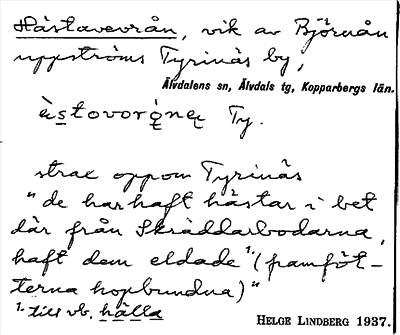 Hästavevrån, vik av Björnån
uppströms Tyrinäs by,
Älvdalens sn, Älvdals tg, Kopparbergs län.
Ty.
strax oppom Tyrinäs
"de har haft hästar i bet
där från Skräddarbodarna,
haft dem eldade¹·(framföt-
terna hopbundna)"
1. till vb. hälla
HELGE LINDBERG 1937.